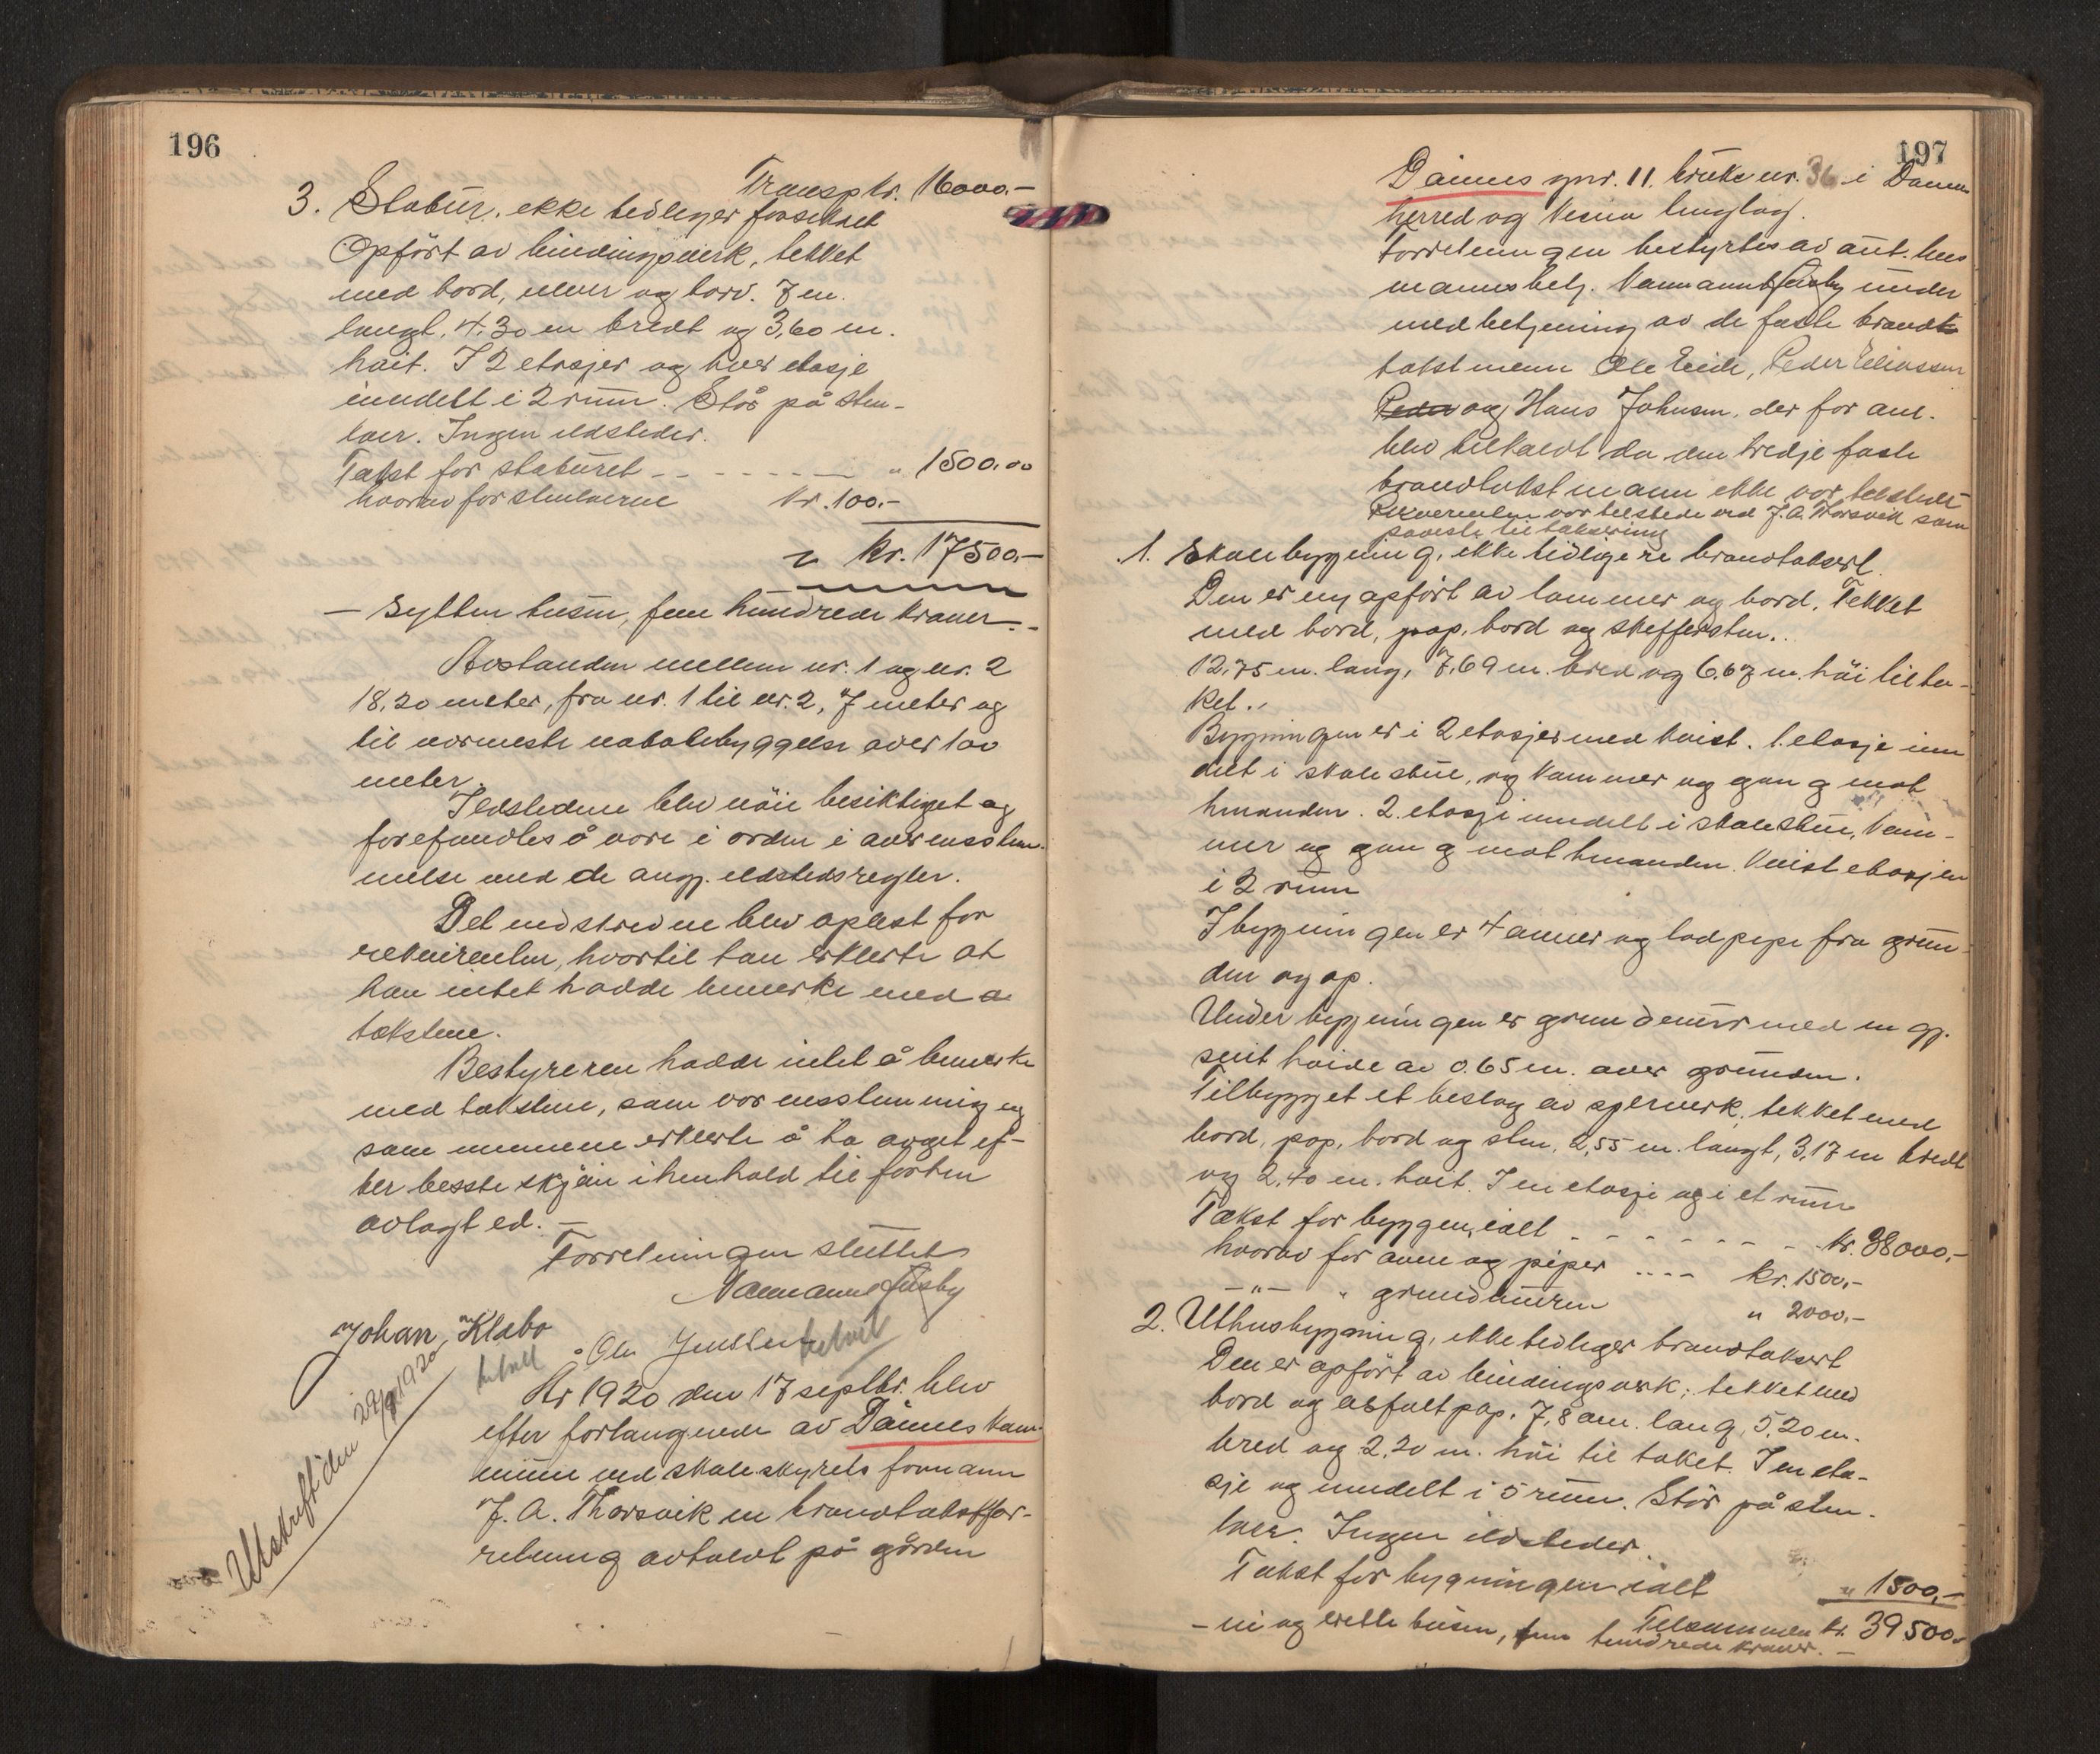 196
Transp kr. 16000.-
3. Stabur, ekke tedleger forsekret
Opført av bindingsverk, tekket
med bord, never og torv. 7 m.
langt, 4.30 m bredt og 3,60 m.
høit. I 2 etasjer og hver etasje
inndelt i 2 rum. Står på sten-
laer. Ingen ildsteder.
Takst for staburet - - - - - - - " 1500.00
hvorav for stenlaerne kr. 100.-
kr. 17500.-
- sytten tusen, fem hundrede kroner.-
Avstanden mellem nr. 1 og nr. 2
18.20 meter, fra nr. 1 til nr. 2, 7 meter og
til nermeste nabobebyggelse over 100
meter.
Ildstedene blev nöie besiktiget og
forefandtes å vere i orden i overensstem-
melse med de angj. ildstedsregler.
Det nedskrevne blev oplest for
rekvirenten, hvortil han erklerte at
han intet hadde bemerke med
takstene.
Bestyreren hadde intet å bemerke
med takstene, som var ensstemmig og
som mennene erklerte å ha avgit ef-
ter beste skjön i henhold til forhen
avlagt ed. -
Forretningen sluttet
Normann Husby
Johan Klabo
Ole Jentsen
betalt
betalt
Utskrift den 29/9 1920
År 1920 den 17 septbr. blev
efter forlangende av Dønnes kom-
mune ved skolestyrets formann
J. A. Thorsvik en brandtakstfor-
retning avholdt på gården
197
Dønnes gnr. 11. bruks nr. 36 i Dønnes
herred og Nesna tinglag.
Forretningen bestyrtes av aut. lens
mannsbetj. Normann Husby under
med betjening av de faste brandt
takstmenn Ole Eide, Peder Eliassen
Peder og Hans Johnsen, der for anl.
blev tilkaldt da den tredje faste
brandtakstmann ikke var tilstede
Rekvirenten var tilstede ved J. A. Thorsvik som
påviste til taksering
1. Skolebygning, ikke tidligere brandtaksert.
Den er ny opført av tømmer og bord. Tekket
med bord, pap, bord og skiffersten.
12,75 m. lang, 7,69 m. bred og 6.67 m. höi til ta-
ket.
Bygningen er i 2 etasjer med kvist. 1. etasje inn
delt i skolestue, og kammer og gang mot
hinanden. 2. etasje inndelt i skolestue, kam-
mer og gang mot hinanden. Kvistetasjen
i 2 rum
I bygningen er 4 ovner og lodpipe fra grun-
den og op.
Under bygningen er grundmur med en gj.
snit høide av 0.65 m. over grunden.
Tilbygget et beslag av sperverk, tekket med
bord, pap, bord og sten, 2,55 m. langt, 3,17 m bredt
og 2,40 m. høit. I en etasje og i et rum
Takst for byggen ialt - - - - - - - kr. 38000,-
hvorav for ovne og piper .... kr. 1500,-
-"- " grundmuren " 2000,-
2. Uthusbygning, ikke tedleger brandtaksert
Den er opført av bindingsverk, tekket med
bord og asfaltpap. 7,80 m. lang, 5.20 m.
bred og 2.20 m. höi til taket. I en eta-
sje og inndelt i 5 rum. Står på sten-
laer. Ingen ildsteder.
Takst for bygningen ialt " 1500,-
Tilsammen kr. 39500-
- ni og tretti tusen, fem hundrede kroner. -